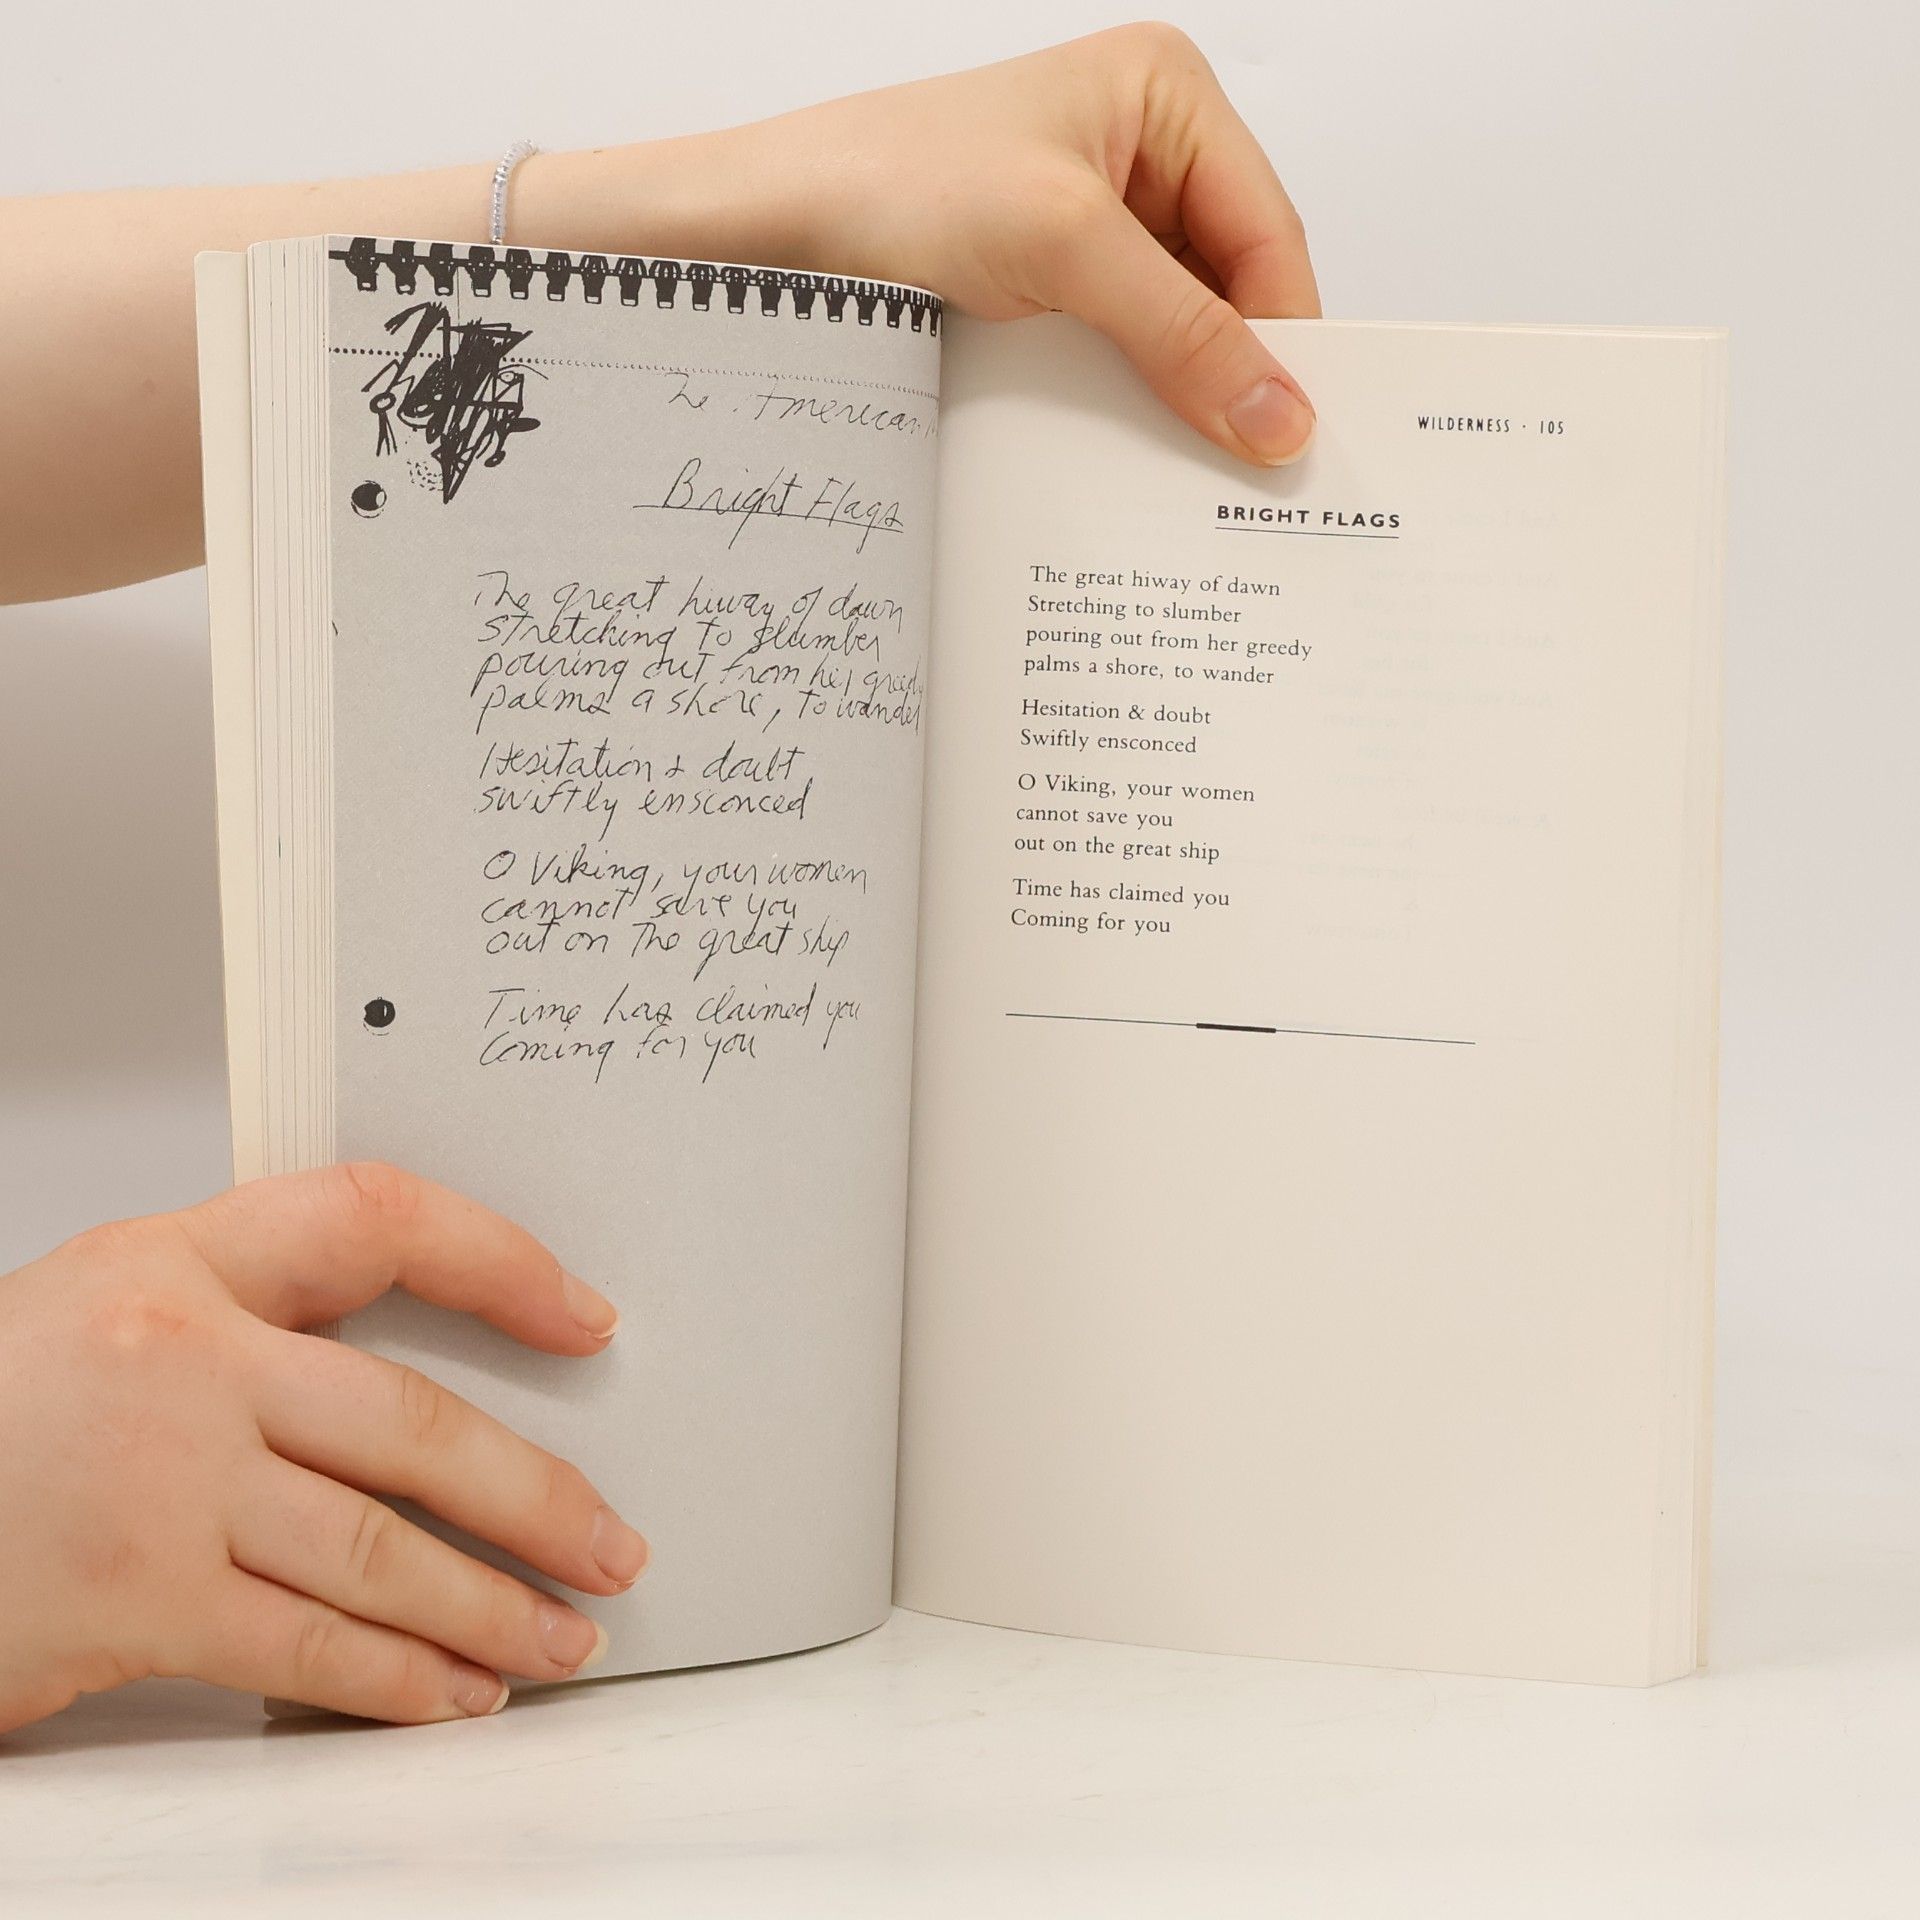 The American
Bright Flags
The great hiway of dawn
stretching to slumber
pouring out from her greedy
palms a shore, to wander
Hesitation & doubt
swiftly ensconced
O Viking, your women
cannot save you
out on The great ship
Time has claimed you
Coming for you
WILDERNESS · 105
BRIGHT FLAGS
The great hiway of dawn
Stretching to slumber
pouring out from her greedy
palms a shore, to wander
Hesitation & doubt
Swiftly ensconced
O Viking, your women
cannot save you
out on the great ship
Time has claimed you
Coming for you